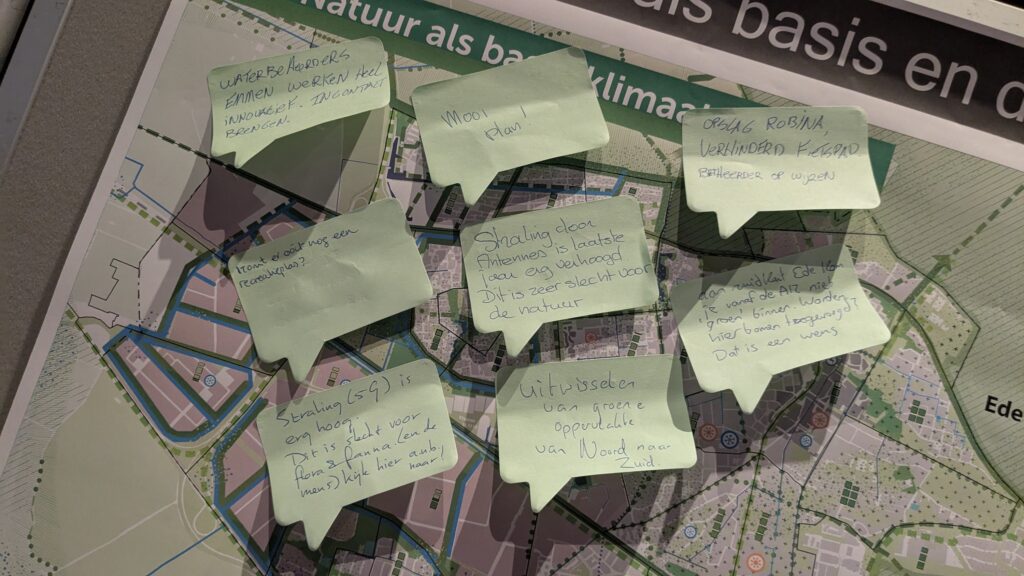 als basis en d
Natuur als bas
klimaa
WATERBEHEERDERS
EMMEN WERKEN HEEL
INNOVATIEF. IN CONTACT
BRENGEN.
Mooi
plan!
OPSLAG ROBINA,
VERHINDERD FIETSPAD
BEHEERDER OP WIJZEN
Komt er ooit nog een
recreatieplas?
Straling door
Antennes is laatste
erg verhoogd
Dit is zeer slecht voor
de natuur
Aan zuidkant Ede
je vanaf de A12 niet
groen binnen. Worden
hier bomen toegevoegd?
Dat is een wens.
Straling (5G) is
erg hoog
Dit is slecht voor
flora & fauna (en de
mens) kijk hier aub
naar!
Uitwisselen
van groene
oppervlakte
van Noord naar
Zuid.
Ede